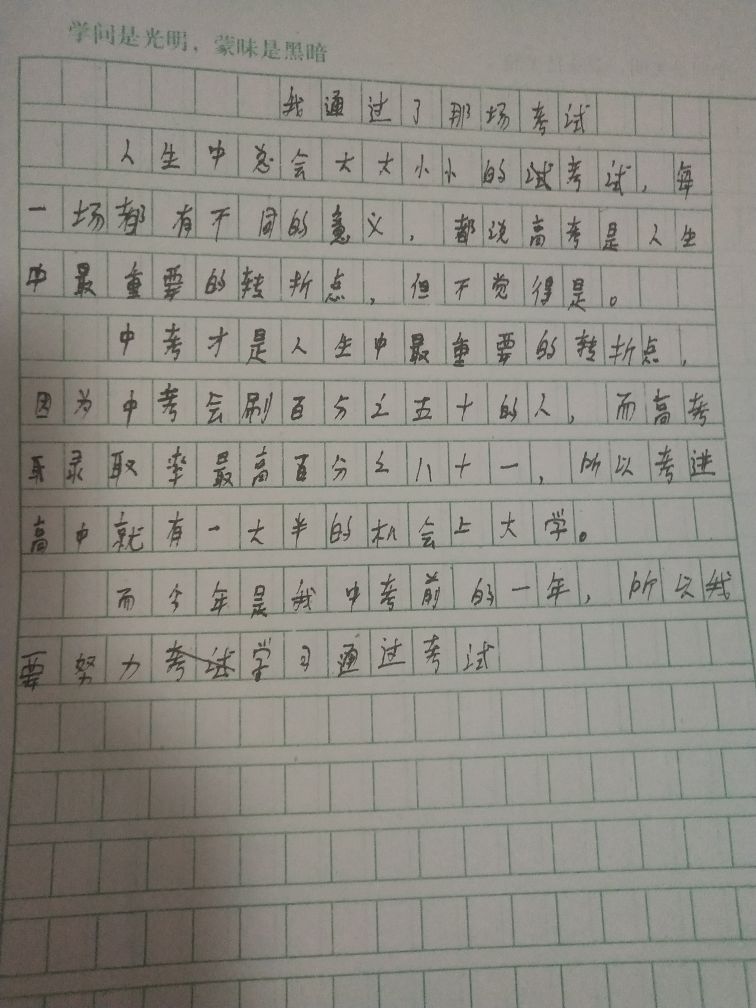 学问是光明，蒙昧是黑暗
我通过了那场考试
人生中总会大大小小的试考试，每
一场都有不同的意义，都说高考是人生
中最重要的转折点，但不觉得是。
中考才是人生中最重要的转折点，
因为中考会刷百分之五十的人，而高考
录取率最高百分之八十一，所以考进
高中就有一大半的机会上大学。
而今年是我中考前的一年，所以我
要努力考试学习通过考试